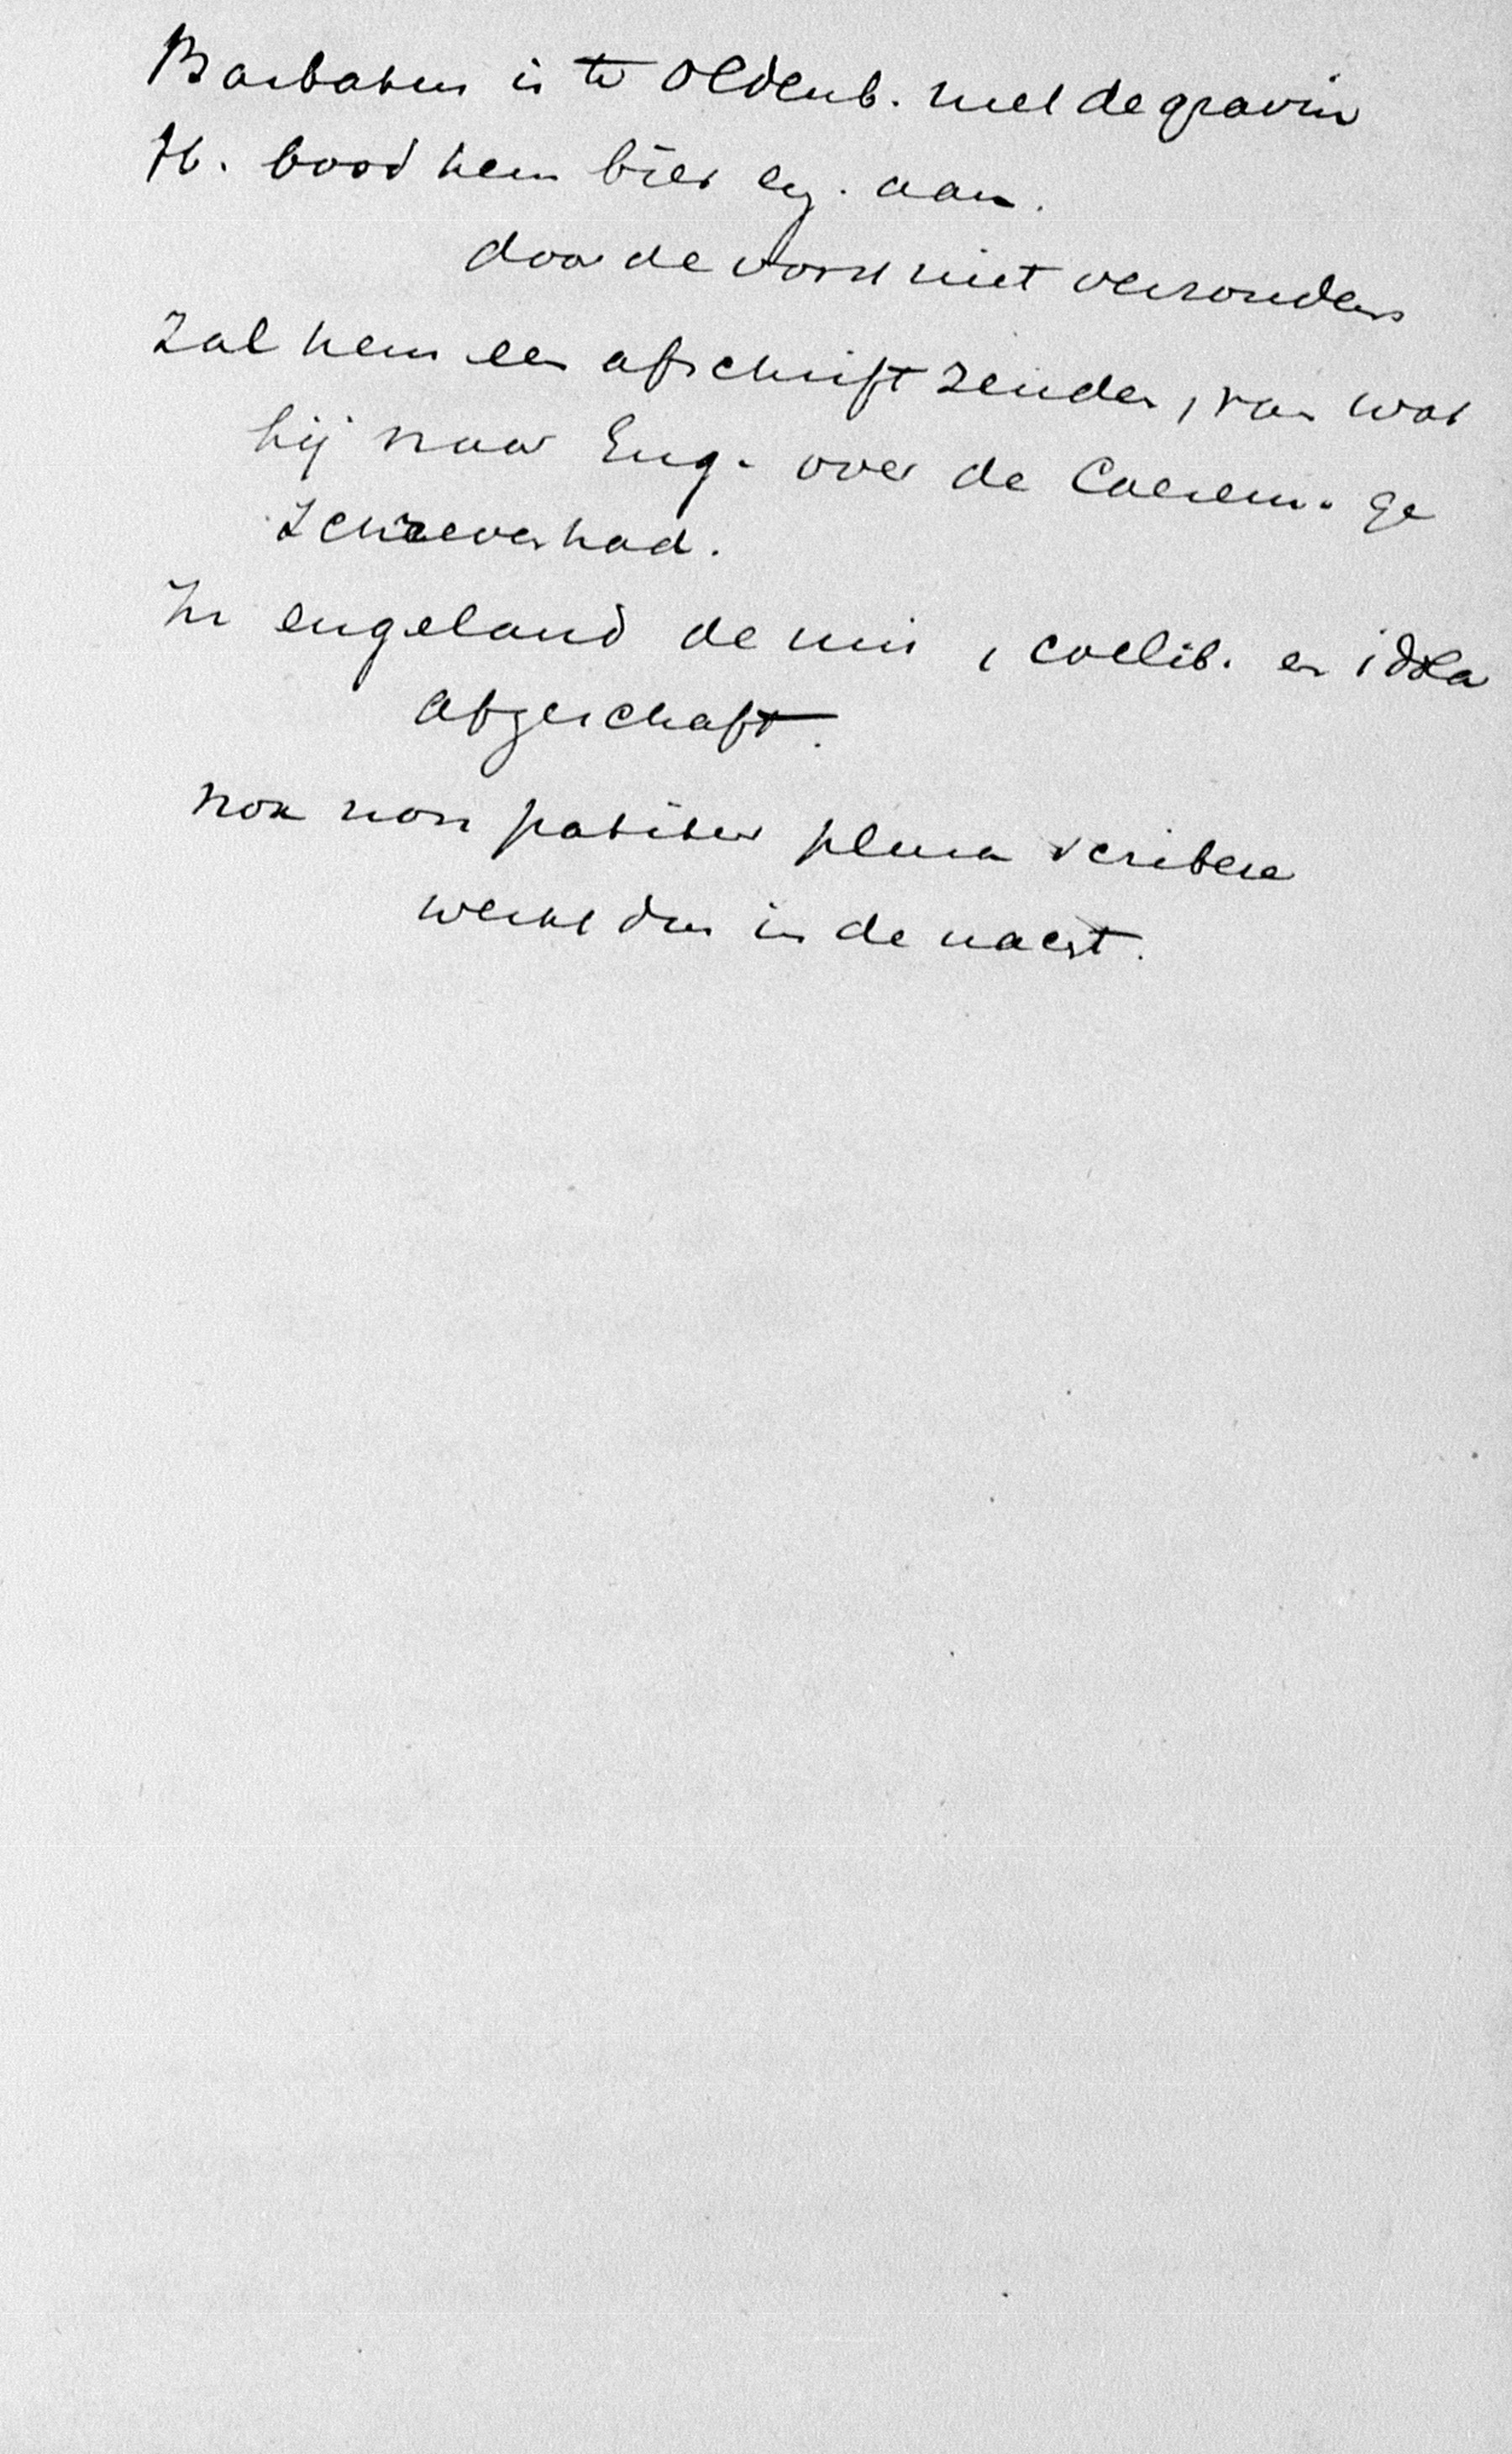 Barbatus is te Oldenb. met de gravin
H. bood hem bier eg. aan.
door de vorst niet verzonden
Zal hem een afschrift zenden, van wat
hij naar Eng. over de Caerem. ge
schreven had.
In engeland de mis, coelib. en idola
afgeschaft.
nox non patitur plura scribere
werkt dus in de nacht.